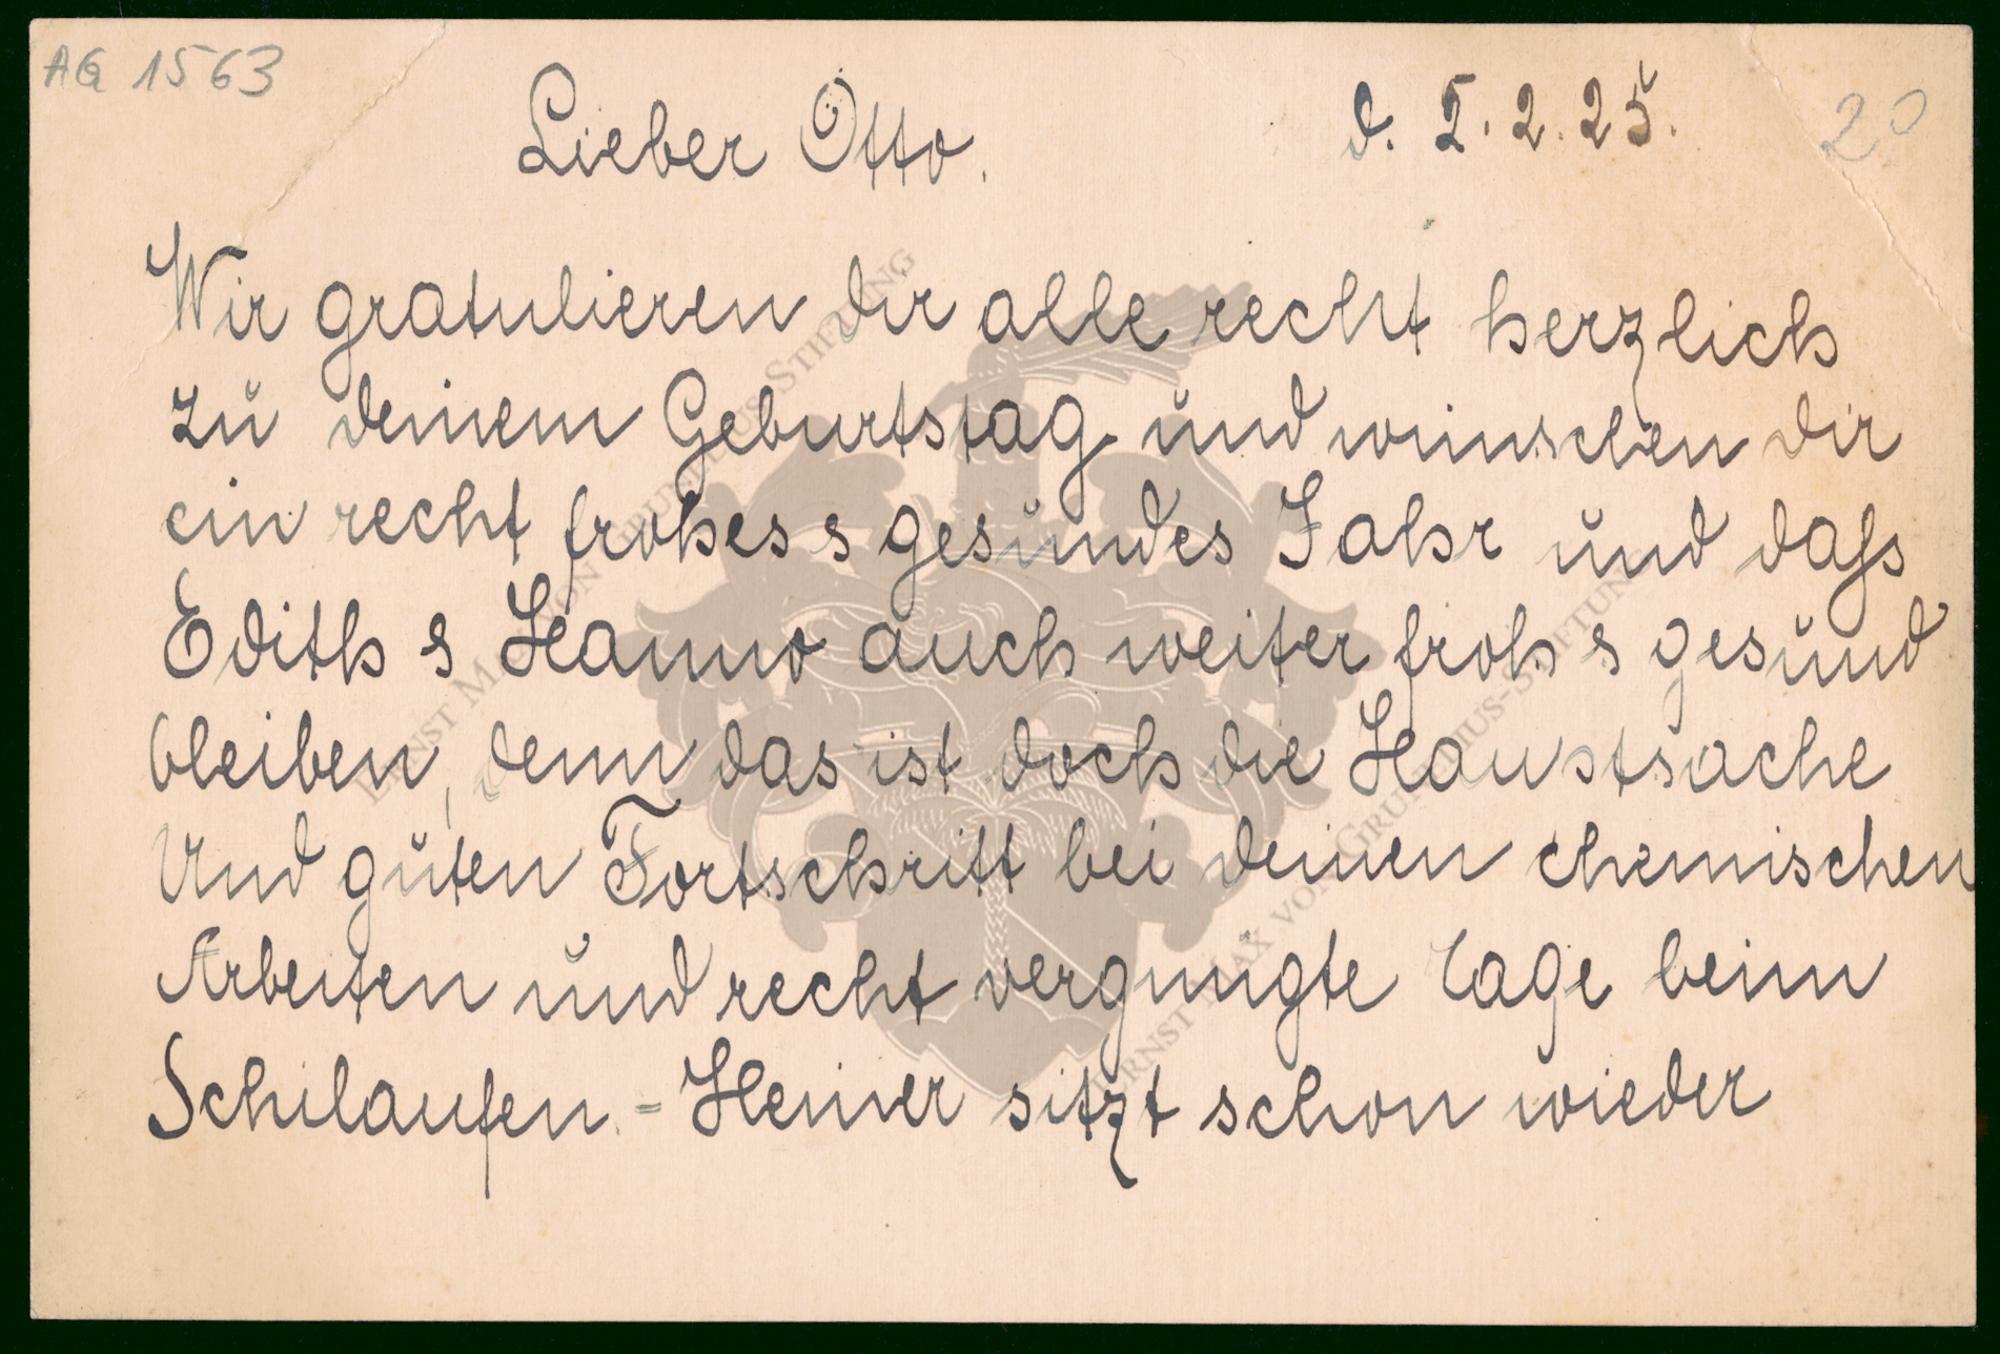 AG 1563
Lieber Otto. d. 5.2.25. 20
Wir gratulieren dir alle recht herzlich
zu deinem Geburtstag und wünschen dir
ein recht frohes & gesundes Jahr und dass
Edith & Hanno auch weiter froh & gesund
bleiben, denn das ist doch die Hauptsache
Und guten Fortschritt bei deinen chemischen
Arbeiten und recht vergnügte Tage beim
Schilaufen. = Heiner sitzt schon wieder
Ernst Max von Grundius-Stiftung
Ernst Max von Grundius-Stiftung